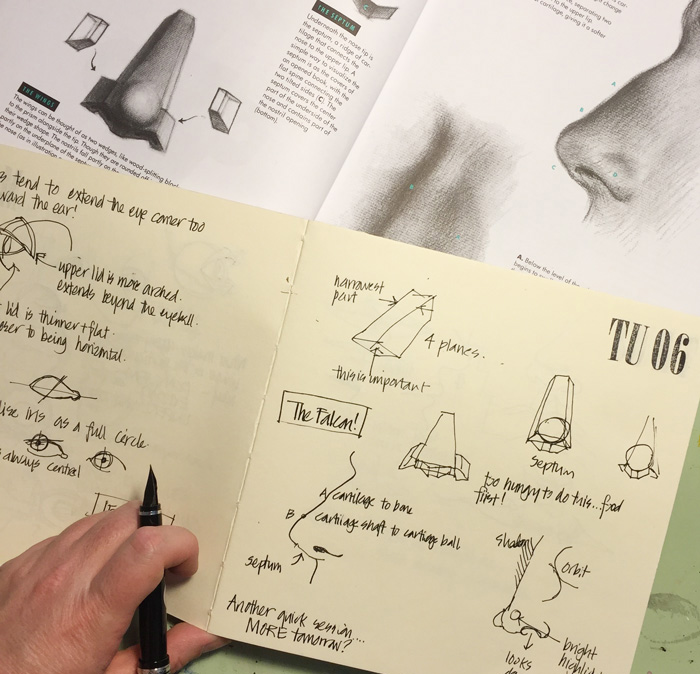 THE SEPTUM
Underneath the nose tip is
the septum, a ridge of car-
tilage that connects the
nose to the upper lip. A
simple way to visualize the
septum is as the covers of
an opened book, with the
flat spine connecting the
two tilted sides (C). The
septum covers the center
part of the underside of the
nose and contains part of
the nostril opening
(bottom).
C
separating two
cartilage, giving it a softer
change
THE WINGS
The wings can be thought of as two wedges, like wood-splitting
to the prism alongside the tip. Though they are rounded off
wedge shape. The nostrils fall partly on the
partly on the underplane of the septum
the nose (as in illustration
A
B
C
D
A. Below the level of the
begins to
tend to extend the eye corner too
ward the ear!
upper lid is more arched.
extends beyond the eyeball.
lid is thinner + flat.
closer to being horizontal.
iris as a full circle.
always central
narrowest
part
4 planes.
this is important
TU 06
The Falcon!
septum
too hungry to do this... food
first!
A cartilage to bone
B cartilage shaft to cartilage ball
septum
shadow
orbit
bright
looks
Another quick session....
MORE tomorrow?